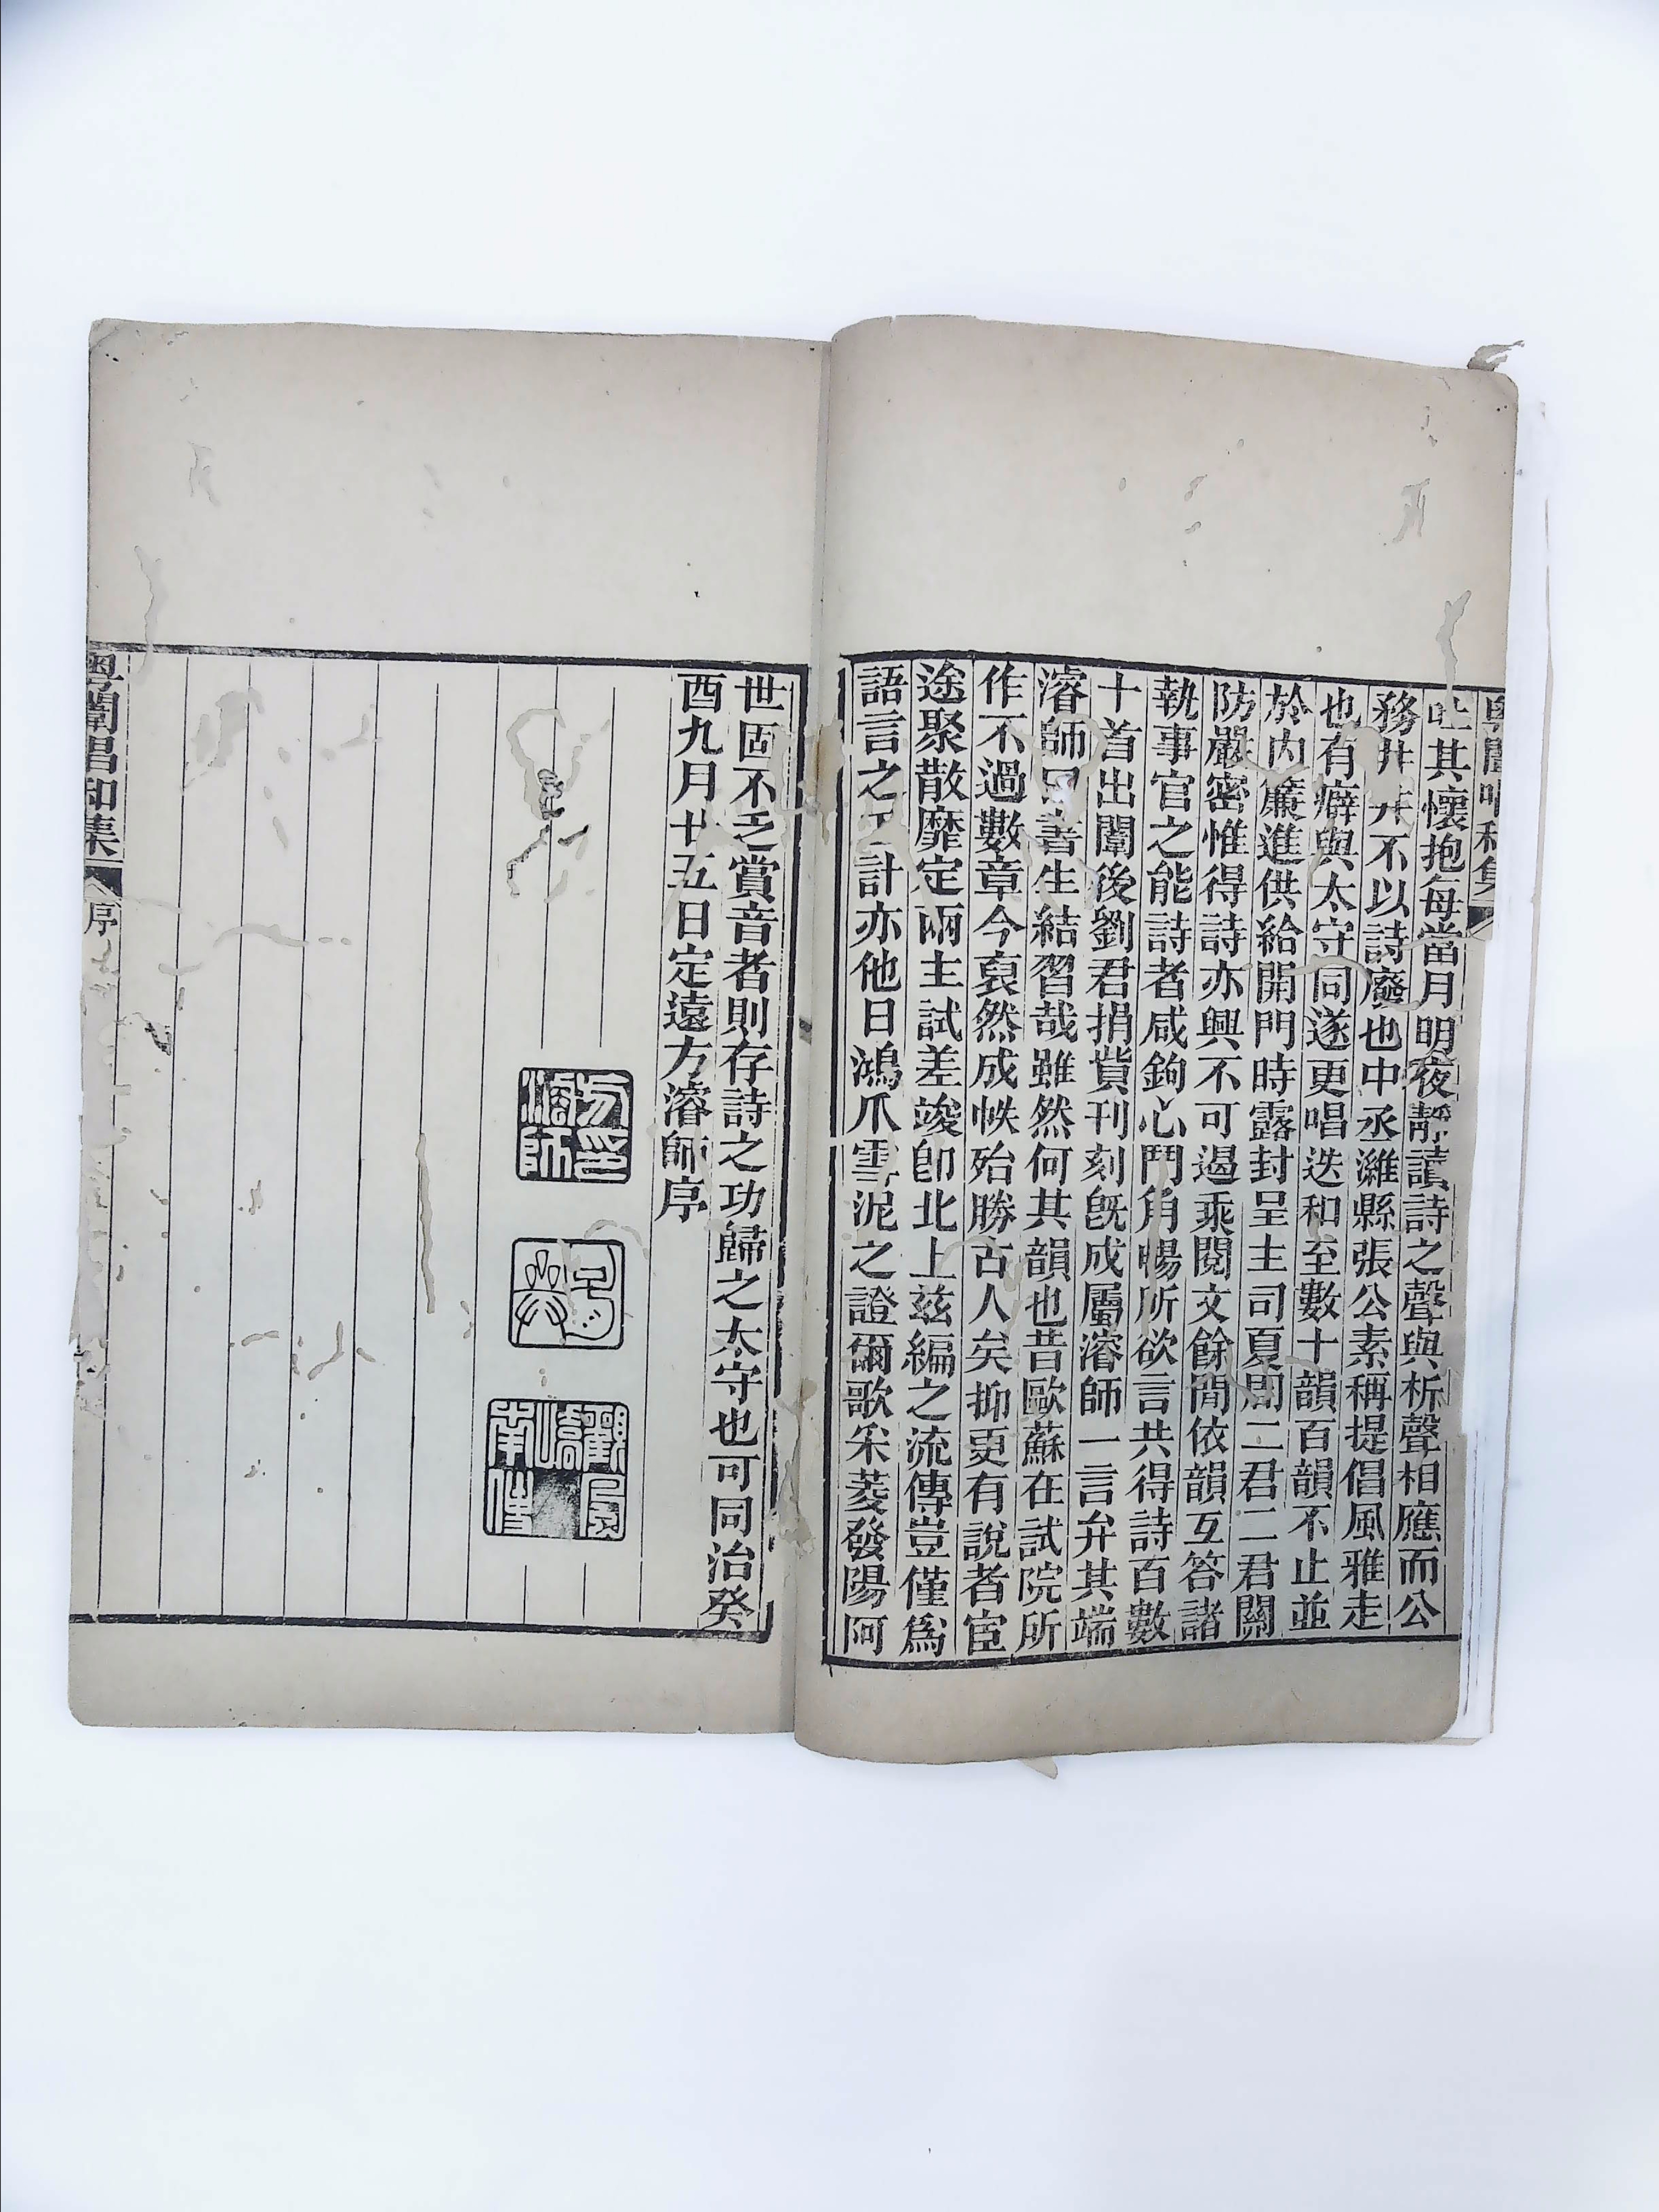 粤闈唱和集
吐其懷抱每當月明夜靜讀詩之聲與柝聲相應而公
務井井不以詩廢也中丞濰縣張公素稱提倡風雅走
也有癖與太守同遂更唱迭和至數十韻百韻不止並
於内簾進供給開門時露封呈主司夏周二君二君關
防嚴密惟得詩亦興不可遏乘閱文餘閒依韻互答諸
執事官之能詩者咸鉤心鬥角暢所欲言共得詩百數
十首出闈後劉君捐貲刊刻旣成屬濬師一言弁其端
濬師曰書生結習哉雖然何其韻也昔歐蘇在試院所
作不過數章今裒然成帙殆勝古人矣抑更有說者宦
途聚散靡定兩主試差竣卽北上兹編之流傳豈僅爲
語言之工計亦他日鴻爪雪泥之證爾歌采菱發陽阿
世固不乏賞音者則存詩之功歸之太守也可同治癸
酉九月廿五日定遠方濬師序
方濬師印
子嚴
粤闈唱和集
序